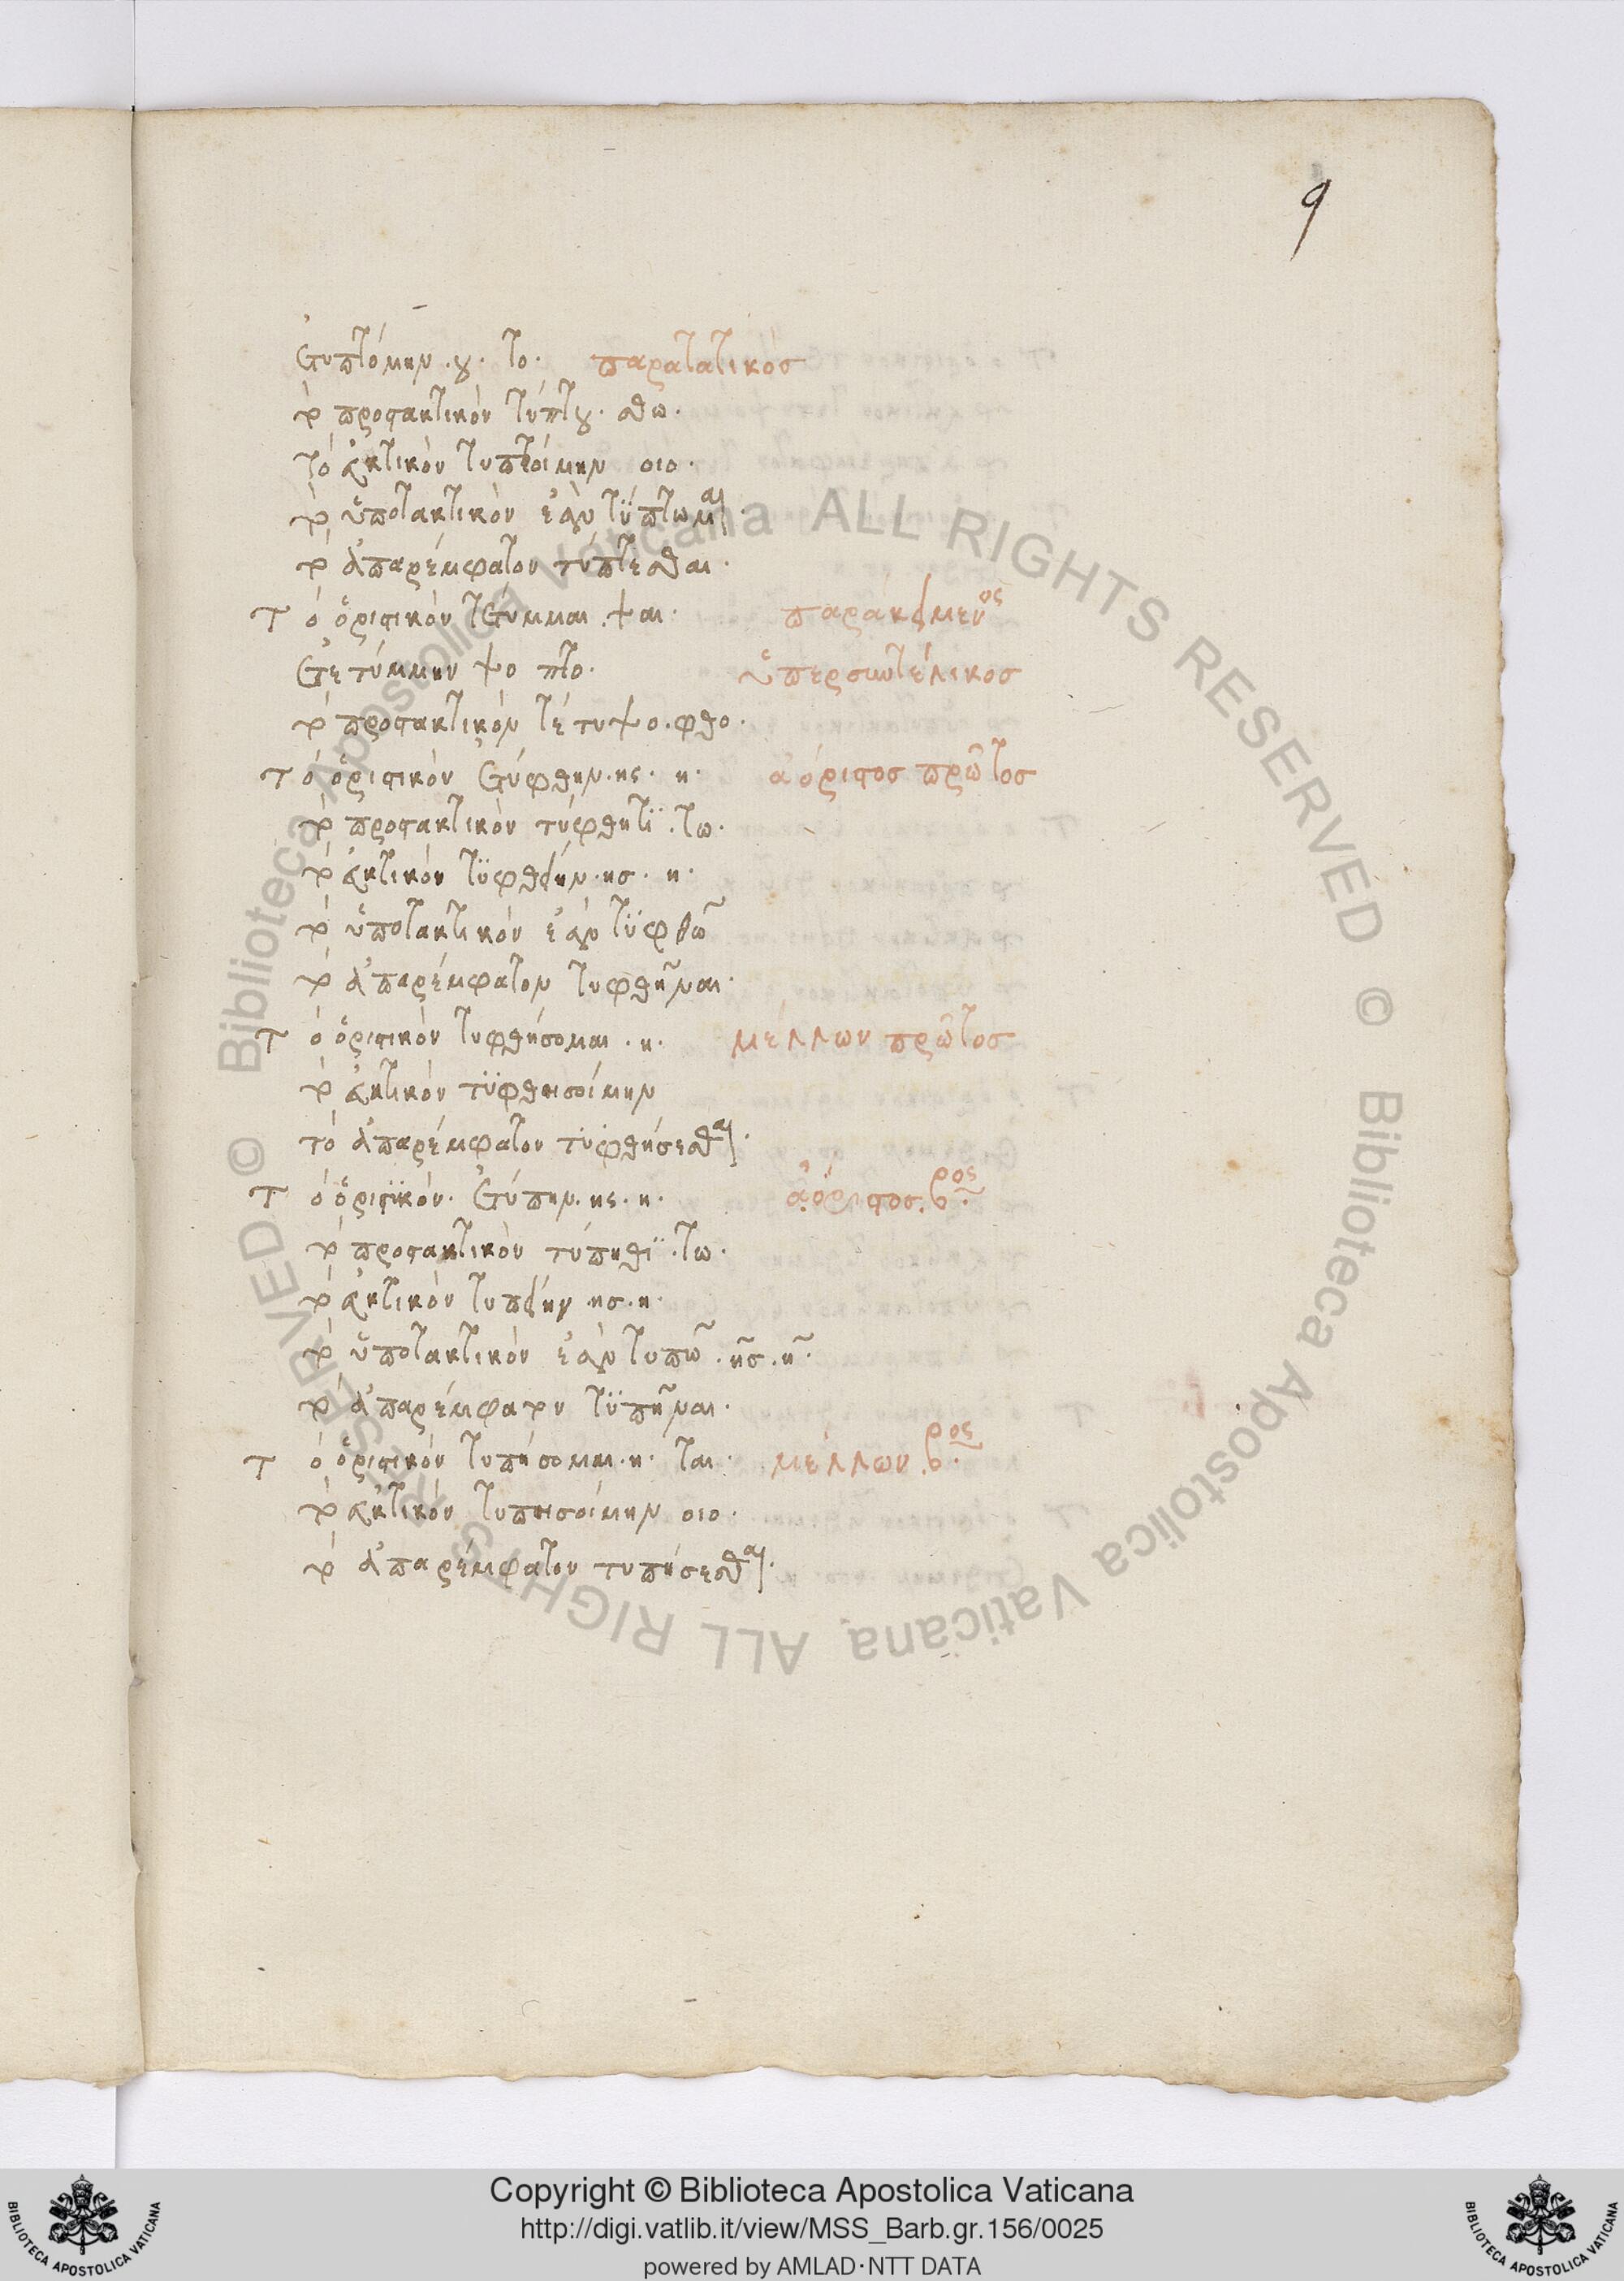 9
ἐτυπτόμην. ου. το. παρατατικόσ
τὸ προστακτικὸν τύπτου. σθω.
τὸ ἐυκτικὸν τυπτοίμην οιο.
τὸ ὑποτακτικὸν ἐὰν τύπτωμαι.
τὸ ἀπαρέμφατον τύπτεσθαι.
Τὸ ὁριστικὸν τέτυμμαι. ψαι. παρακείμενος
ἐτετύμμην ψο πτο. ὑπερσυντέλικοσ
τὸ προστακτικὸν τέτυψο. φθο.
Τὸ ὁριστικὸν ἐτύφθην. ης. η. ἀόριστοσ πρῶτοσ
τὸ προστακτικὸν τύφθητϊ. τω.
τὸ ἐυκτικὸν τϋφθείην. ησ. η.
τὸ ὑποτακτικὸν ἐὰν τϋφθῶ
τὸ ἀπαρέμφατον τυφθῆναι.
Τὸ ὁριστικὸν τυφθήσομαι. η. μέλλων πρῶτοσ
τὸ ἐυκτικὸν τϋφθησοίμην
τὸ ἀπαρέμφατον τϋφθήσεσθαι.
Τὸ ὁριστϊκόν. ἐτύπην. ης. η. ἀόριστοσ. βʹ.ρος
τὸ προστακτικὸν τύπηθϊ. τω.
τὸ ἐυκτικὸν τυπείην. ησ. η.
τὸ ὑποτακτικὸν ἐὰν τυπῶ. ῆσ. ῆ.
τὸ ἀπαρέμφατον τϋπῆναι.
Τὸ ὁριστικὸν τυπήσομαι. η. ται. μέλλων. βʹ.ρος
τὸ ἐυκτικὸν τυπησοίμην οιο.
τὸ ἀπαρέμφατον τυπήσεσθαι.
Biblioteca Apostolica Vaticana ALL RIGHTS RESERVED © Biblioteca Apostolica Vaticana ALL RIGHTS RESERVED ©
Copyright © Biblioteca Apostolica Vaticana
http://digi.vatlib.it/view/MSS_Barb.gr.156/0025
powered by AMLAD·NTT DATA
BIBLIOTECA APOSTOLICA VATICANA
BIBLIOTECA APOSTOLICA VATICANA